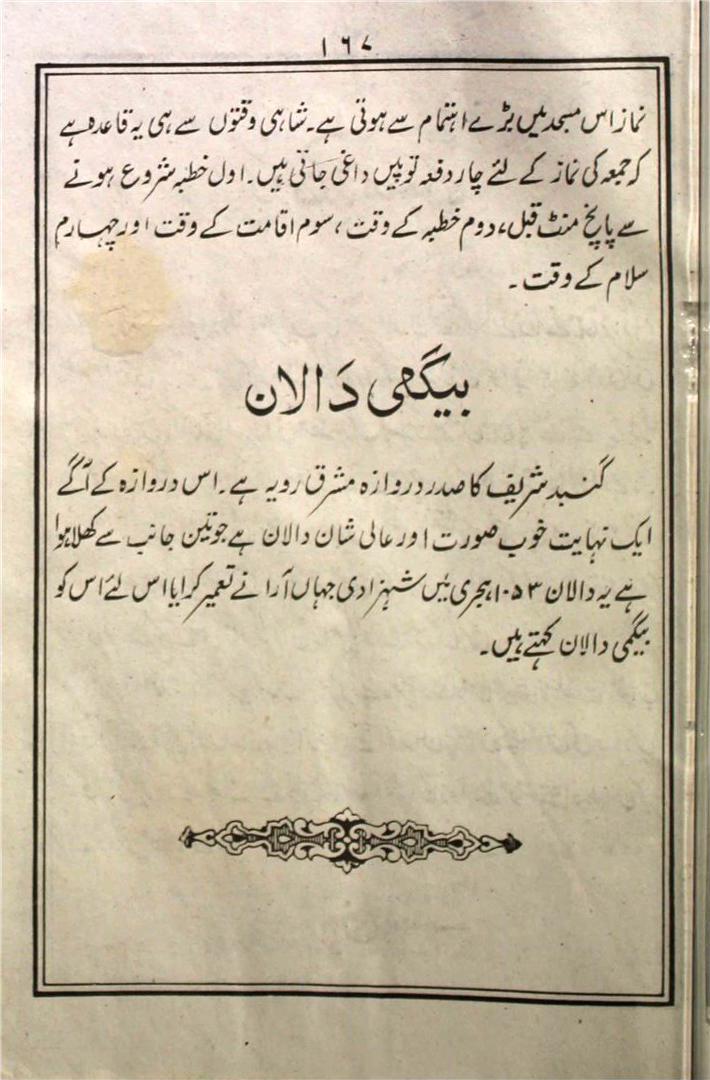 ۱۶۷
نماز اس مسجد میں بڑے اہتمام سے ہوتی ہے۔ شاہی وقتوں سے ہی یہ قاعدہ ہے
کہ جمعہ کی نماز کے لئے چار دفعہ توپیں داغی جاتی ہیں۔ اول خطبہ شروع ہونے
سے پانچ منٹ قبل، دوم خطبہ کے وقت، سوم اقامت کے وقت اور چہارم
سلام کے وقت۔
بیگمی دالان
گنبد شریف کا صدر دروازہ مشرق رویہ ہے۔ اس دروازہ کے آگے
ایک نہایت خوب صورت اور عالی شان دالان ہے جو تین جانب سے کھلا ہوا
ہے یہ دالان ۱۰۵۳ ہجری میں شہزادی جہاں آرا نے تعمیر کرایا اس لئے اس کو
بیگمی دالان کہتے ہیں۔